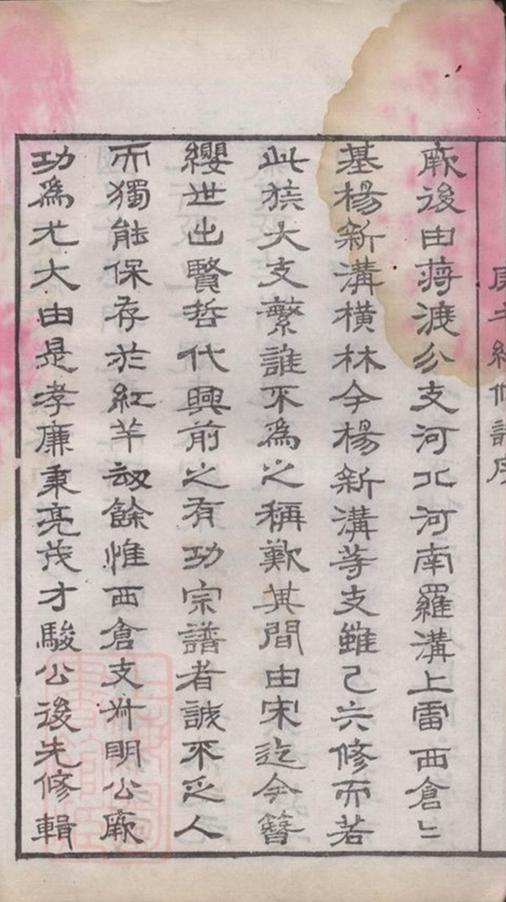 庚午續修譜序
厥後由蔣渡分支河北河南羅溝上雷西倉上
基楊新溝橫林今楊新溝等支雖已六修而若
此族大支蘩誰不為之稱歎其間由宋迄今簪
纓世出賢哲代興前之有功宗譜者誠不乏人
而獨能保存於紅羊劫餘惟西倉支升明公厥
功為尤大由是孝廉秉亮茂才駿公後先修輯